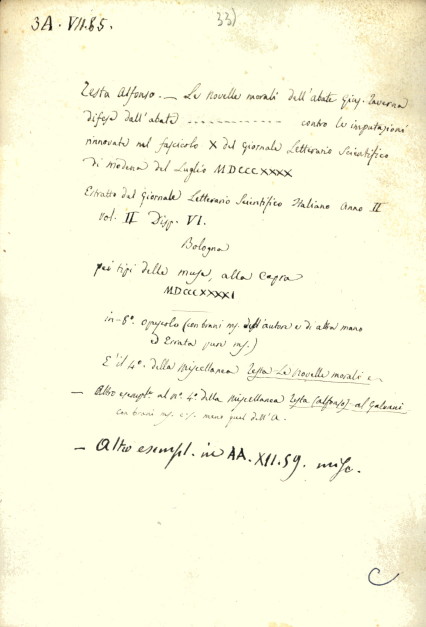 3A. VII.85.
33)
Testa Alfonso. — Le Novelle morali dell'abate Gius. Taverna
difesa dall'abate ------------- contro le imputazioni
rinnovate nel fascicolo X del Giornale Letterario Scientifico
di Modena del Luglio MDCCCXXXX
Estratto dal Giornale Letterario Scientifico Italiano Anno II
vol. II Disp. VI.
Bologna
pei tipi delle muse, alla Capra
MDCCCXXXXI
in-8°. opuscolo (con brani mj. dell'autore e di altra mano
ed Errata pure mj.)
È il 4°. della Miscellanea Testa Le Novelle morali e
— Altro esempl. al n°. 4°. della Miscellanea Testa (Alfonso) al Galvani
con brani mj. men quel dell'A.
— Altro esempl. in AA. XII.59. misc.
C